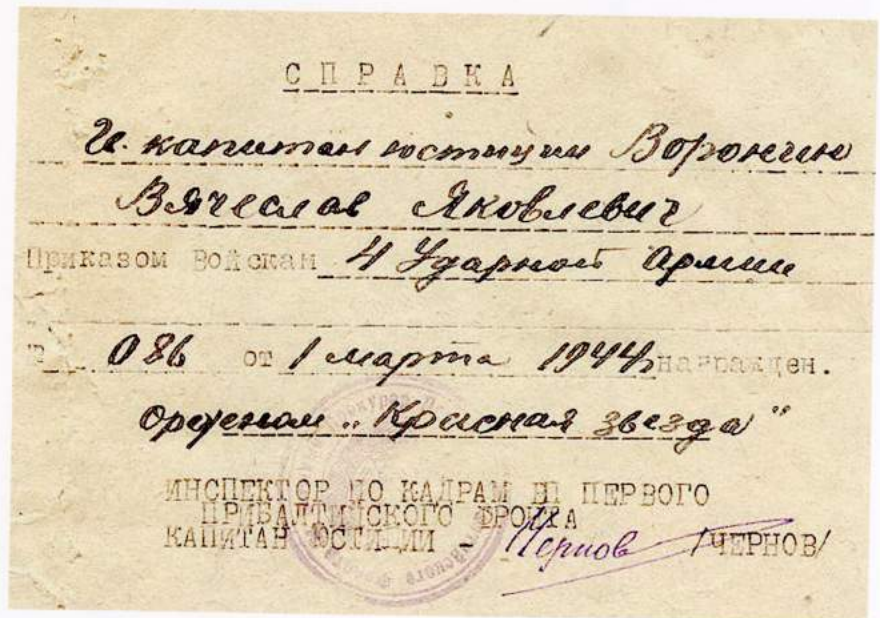 СПРАВКА
капитан юстиции Воронин
Вячеслав Яковлевич
Приказом Войскам 4 Ударной Армии
086 от 1 марта 1944г награжден.
орденом „Красная звезда"
ИНСПЕКТОР ПО КАДРАМ ВП ПЕРВОГО
ПРИБАЛТИЙСКОГО ФРОНТА
КАПИТАН ЮСТИЦИИ - Чернов /ЧЕРНОВ/